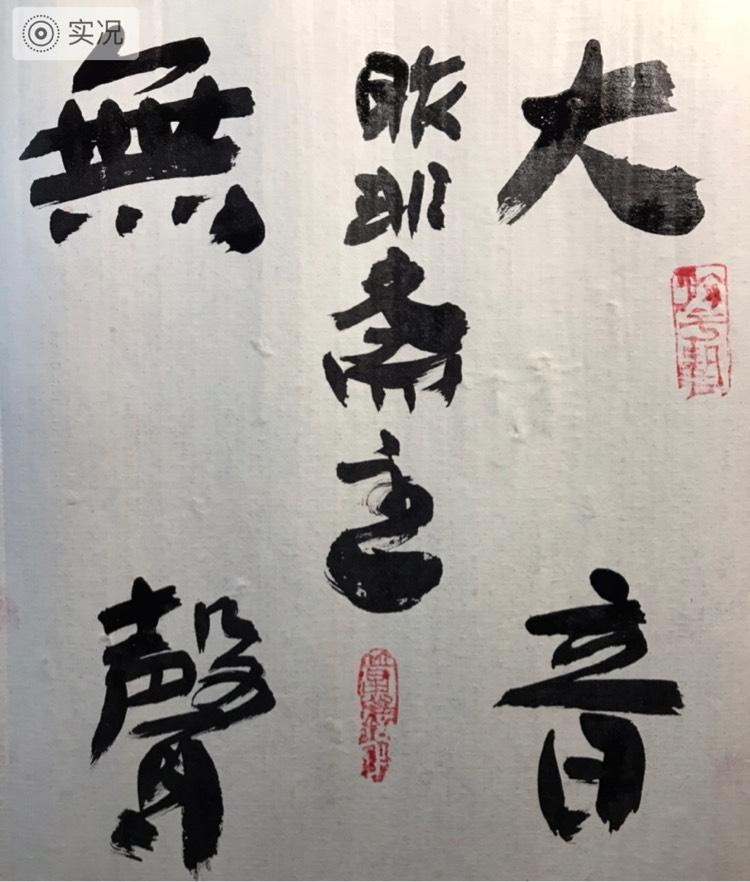 实况
大音
昨非斋主
無聲